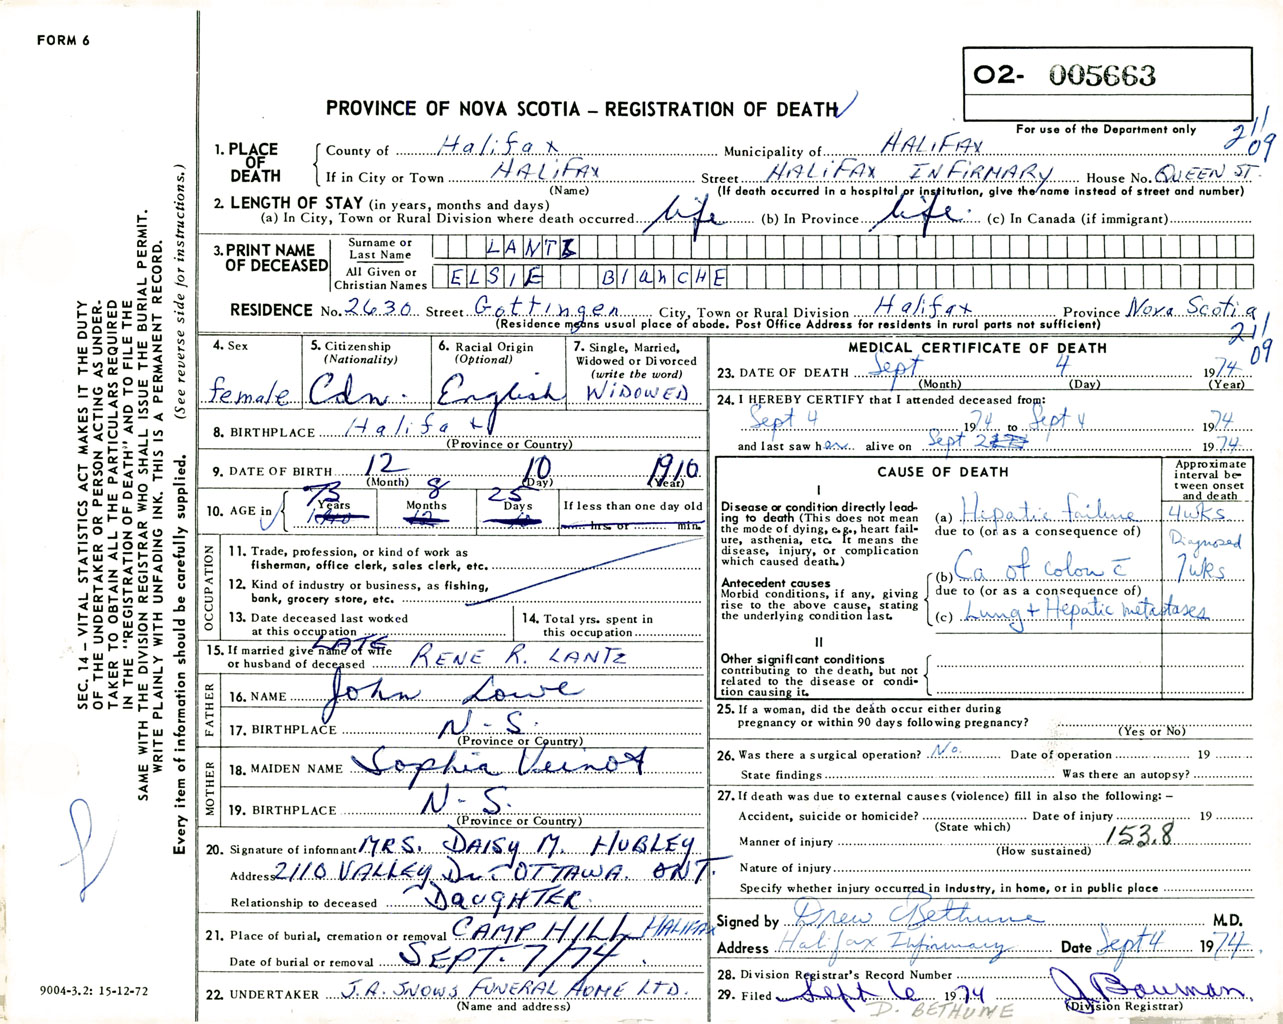 FORM 6
O2- 005663
PROVINCE OF NOVA SCOTIA – REGISTRATION OF DEATH
For use of the Department only
211
09
1. PLACE OF DEATH
County of Halifax Municipality of HALIFAX
If in City or Town HALIFAX Street HALIFAX INFIRMARY House No. QUEEN ST.
(Name) (If death occurred in a hospital or institution, give the name instead of street and number)
2. LENGTH OF STAY (in years, months and days)
(a) In City, Town or Rural Division where death occurred life (b) In Province life. (c) In Canada (if immigrant)
3. PRINT NAME OF DECEASED
Surname or Last Name LANTZ
All Given or Christian Names ELSIE BLanCHE
RESIDENCE No. 2630 Street Gottingen City, Town or Rural Division Halifax Province Nova Scotia
(Residence means usual place of abode. Post Office Address for residents in rural parts not sufficient)
211
09
4. Sex female
5. Citizenship (Nationality) Cdn.
6. Racial Origin (Optional) English
7. Single, Married, Widowed or Divorced (write the word) WIDOWED
8. BIRTHPLACE Halifax
(Province or Country)
9. DATE OF BIRTH 12 10 1910
(Month) (Day) (Year)
10. AGE in 73 Years 8 Months 25 Days If less than one day old hrs. or min.
OCCUPATION
11. Trade, profession, or kind of work as fisherman, office clerk, sales clerk, etc.
12. Kind of industry or business, as fishing, bank, grocery store, etc.
13. Date deceased last worked at this occupation
14. Total yrs. spent in this occupation
15. If married give name of wife or husband of deceased LATE RENE R. LANTZ
FATHER
16. NAME John Lowe
17. BIRTHPLACE N-S.
(Province or Country)
MOTHER
18. MAIDEN NAME Sophia Veinot
19. BIRTHPLACE N-S.
(Province or Country)
20. Signature of informant MRS. DAISY M. HUBLEY
Address 2110 VALLEY Dr. OTTAWA. ONT.
Relationship to deceased DAUGHTER.
21. Place of burial, cremation or removal CAMP HILL HALIFAX
Date of burial or removal SEPT. 7/74.
22. UNDERTAKER J.A. SNOWS FUNERAL HOME LTD.
(Name and address)
MEDICAL CERTIFICATE OF DEATH
23. DATE OF DEATH Sept 4 1974
(Month) (Day) (Year)
24. I HEREBY CERTIFY that I attended deceased from:
Sept 4 1974 to Sept 4 1974
and last saw her alive on Sept 2 1974
CAUSE OF DEATH
Approximate interval between onset and death
I
Disease or condition directly leading to death (This does not mean the mode of dying, e.g., heart failure, asthenia, etc. It means the disease, injury, or complication which caused death.)
(a) Hepatic failure 4 wks
due to (or as a consequence of) Diagnosed
Antecedent causes
Morbid conditions, if any, giving rise to the above cause, stating the underlying condition last.
(b) Ca of colon c̄ 7 wks
due to (or as a consequence of)
(c) Lung + Hepatic metastases
II
Other significant conditions contributing to the death, but not related to the disease or condition causing it.
25. If a woman, did the death occur either during pregnancy or within 90 days following pregnancy?
(Yes or No)
26. Was there a surgical operation? No. Date of operation 19
State findings Was there an autopsy?
27. If death was due to external causes (violence) fill in also the following: –
Accident, suicide or homicide? Date of injury 19
(State which)
Manner of injury 153.8
(How sustained)
Nature of injury
Specify whether injury occurred in industry, in home, or in public place
Signed by Drew Bethune M.D.
Address Halifax Infirmary Date Sept 4 1974.
28. Division Registrar's Record Number
29. Filed Sept 6 1974 J Bauman.
(Division Registrar)
D. BETHUNE
SEC. 14 – VITAL STATISTICS ACT MAKES IT THE DUTY
OF THE UNDERTAKER OR PERSON ACTING AS UNDERTAKER TO OBTAIN ALL THE PARTICULARS REQUIRED
IN THE "REGISTRATION OF DEATH" AND TO FILE THE
SAME WITH THE DIVISION REGISTRAR WHO SHALL ISSUE THE BURIAL PERMIT.
WRITE PLAINLY WITH UNFADING INK. THIS IS A PERMANENT RECORD.
Every item of information should be carefully supplied. (See reverse side for instructions.)
9004-3.2: 15-12-72